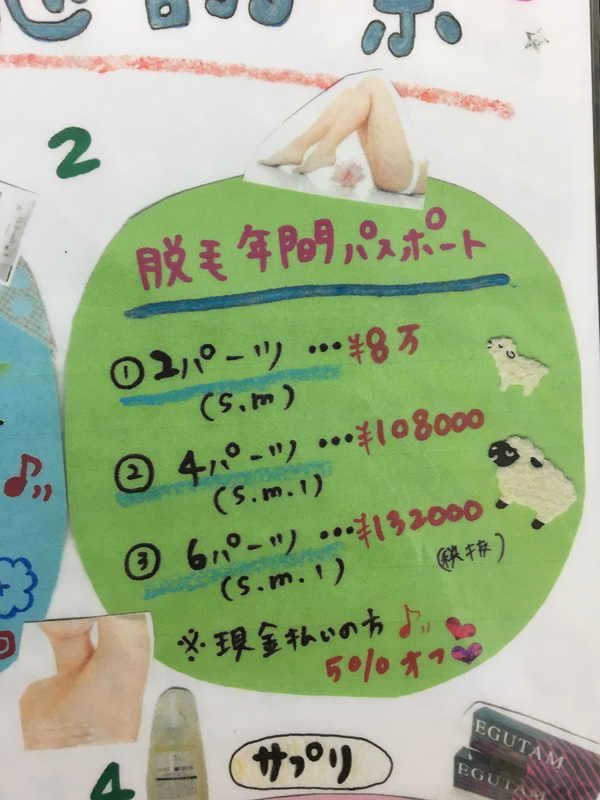 感謝祭
2
脱毛年間パスポート
① 2パーツ …¥8万
(S.m)
② 4パーツ …¥108000
(S.m.l)
③ 6パーツ …¥132000
(S.m.l)
(税抜)
※現金払いの方
50%オフ
サプリ
4
EGUTAM
EGUTAM